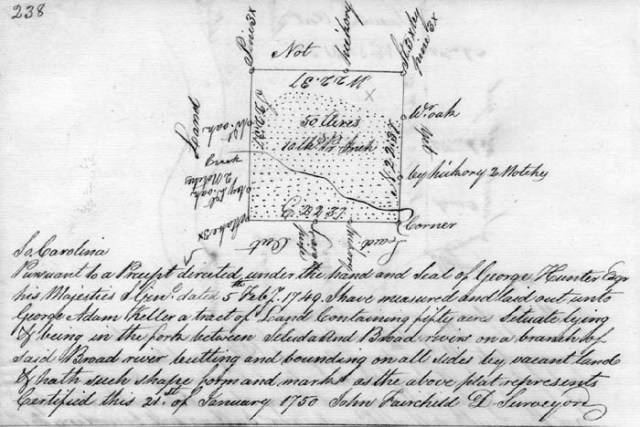 238
Pine 3x
Not
hickory
Pine 3x
W 22.37
Land
W. oak
50 Acres
W. oak
10 Ch. pr. Inch
Not
Creek
by hickory 2 Notches
2 Notches
Stake 3x
E 22.37
Corner
Not
Land
So Carolina
Pursuant to a Precept directed under the hand and Seal of George Hunter Esqr
his Majesties S. Genl. dated 5th Feb'y. 1749. I have measured and laid out unto
George Adam Keller a tract of Land Containing fifty acres Situate lying
& being in the fork between Saluda and Broad rivers on a branch of
Said Broad river butting and bounding on all sides by vacant land
& hath such shape form and marks as the above plat represents
Certified this 21st of January 1750 John Fairchild D. Surveyor